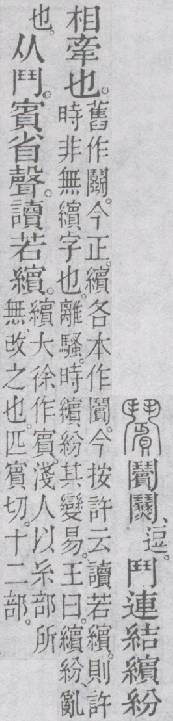 逗。鬥連結繽紛
相牽也。
舊作鬭。今正。繽各本作。今按許云讀若繽。則許
時非無繽字也。離騷。時繽紛其變易。王曰。繽紛亂
也。
从鬥。賓省聲。讀若繽。
繽大徐作賓。淺人以糸部所
無改之也。匹賓切。十二部。